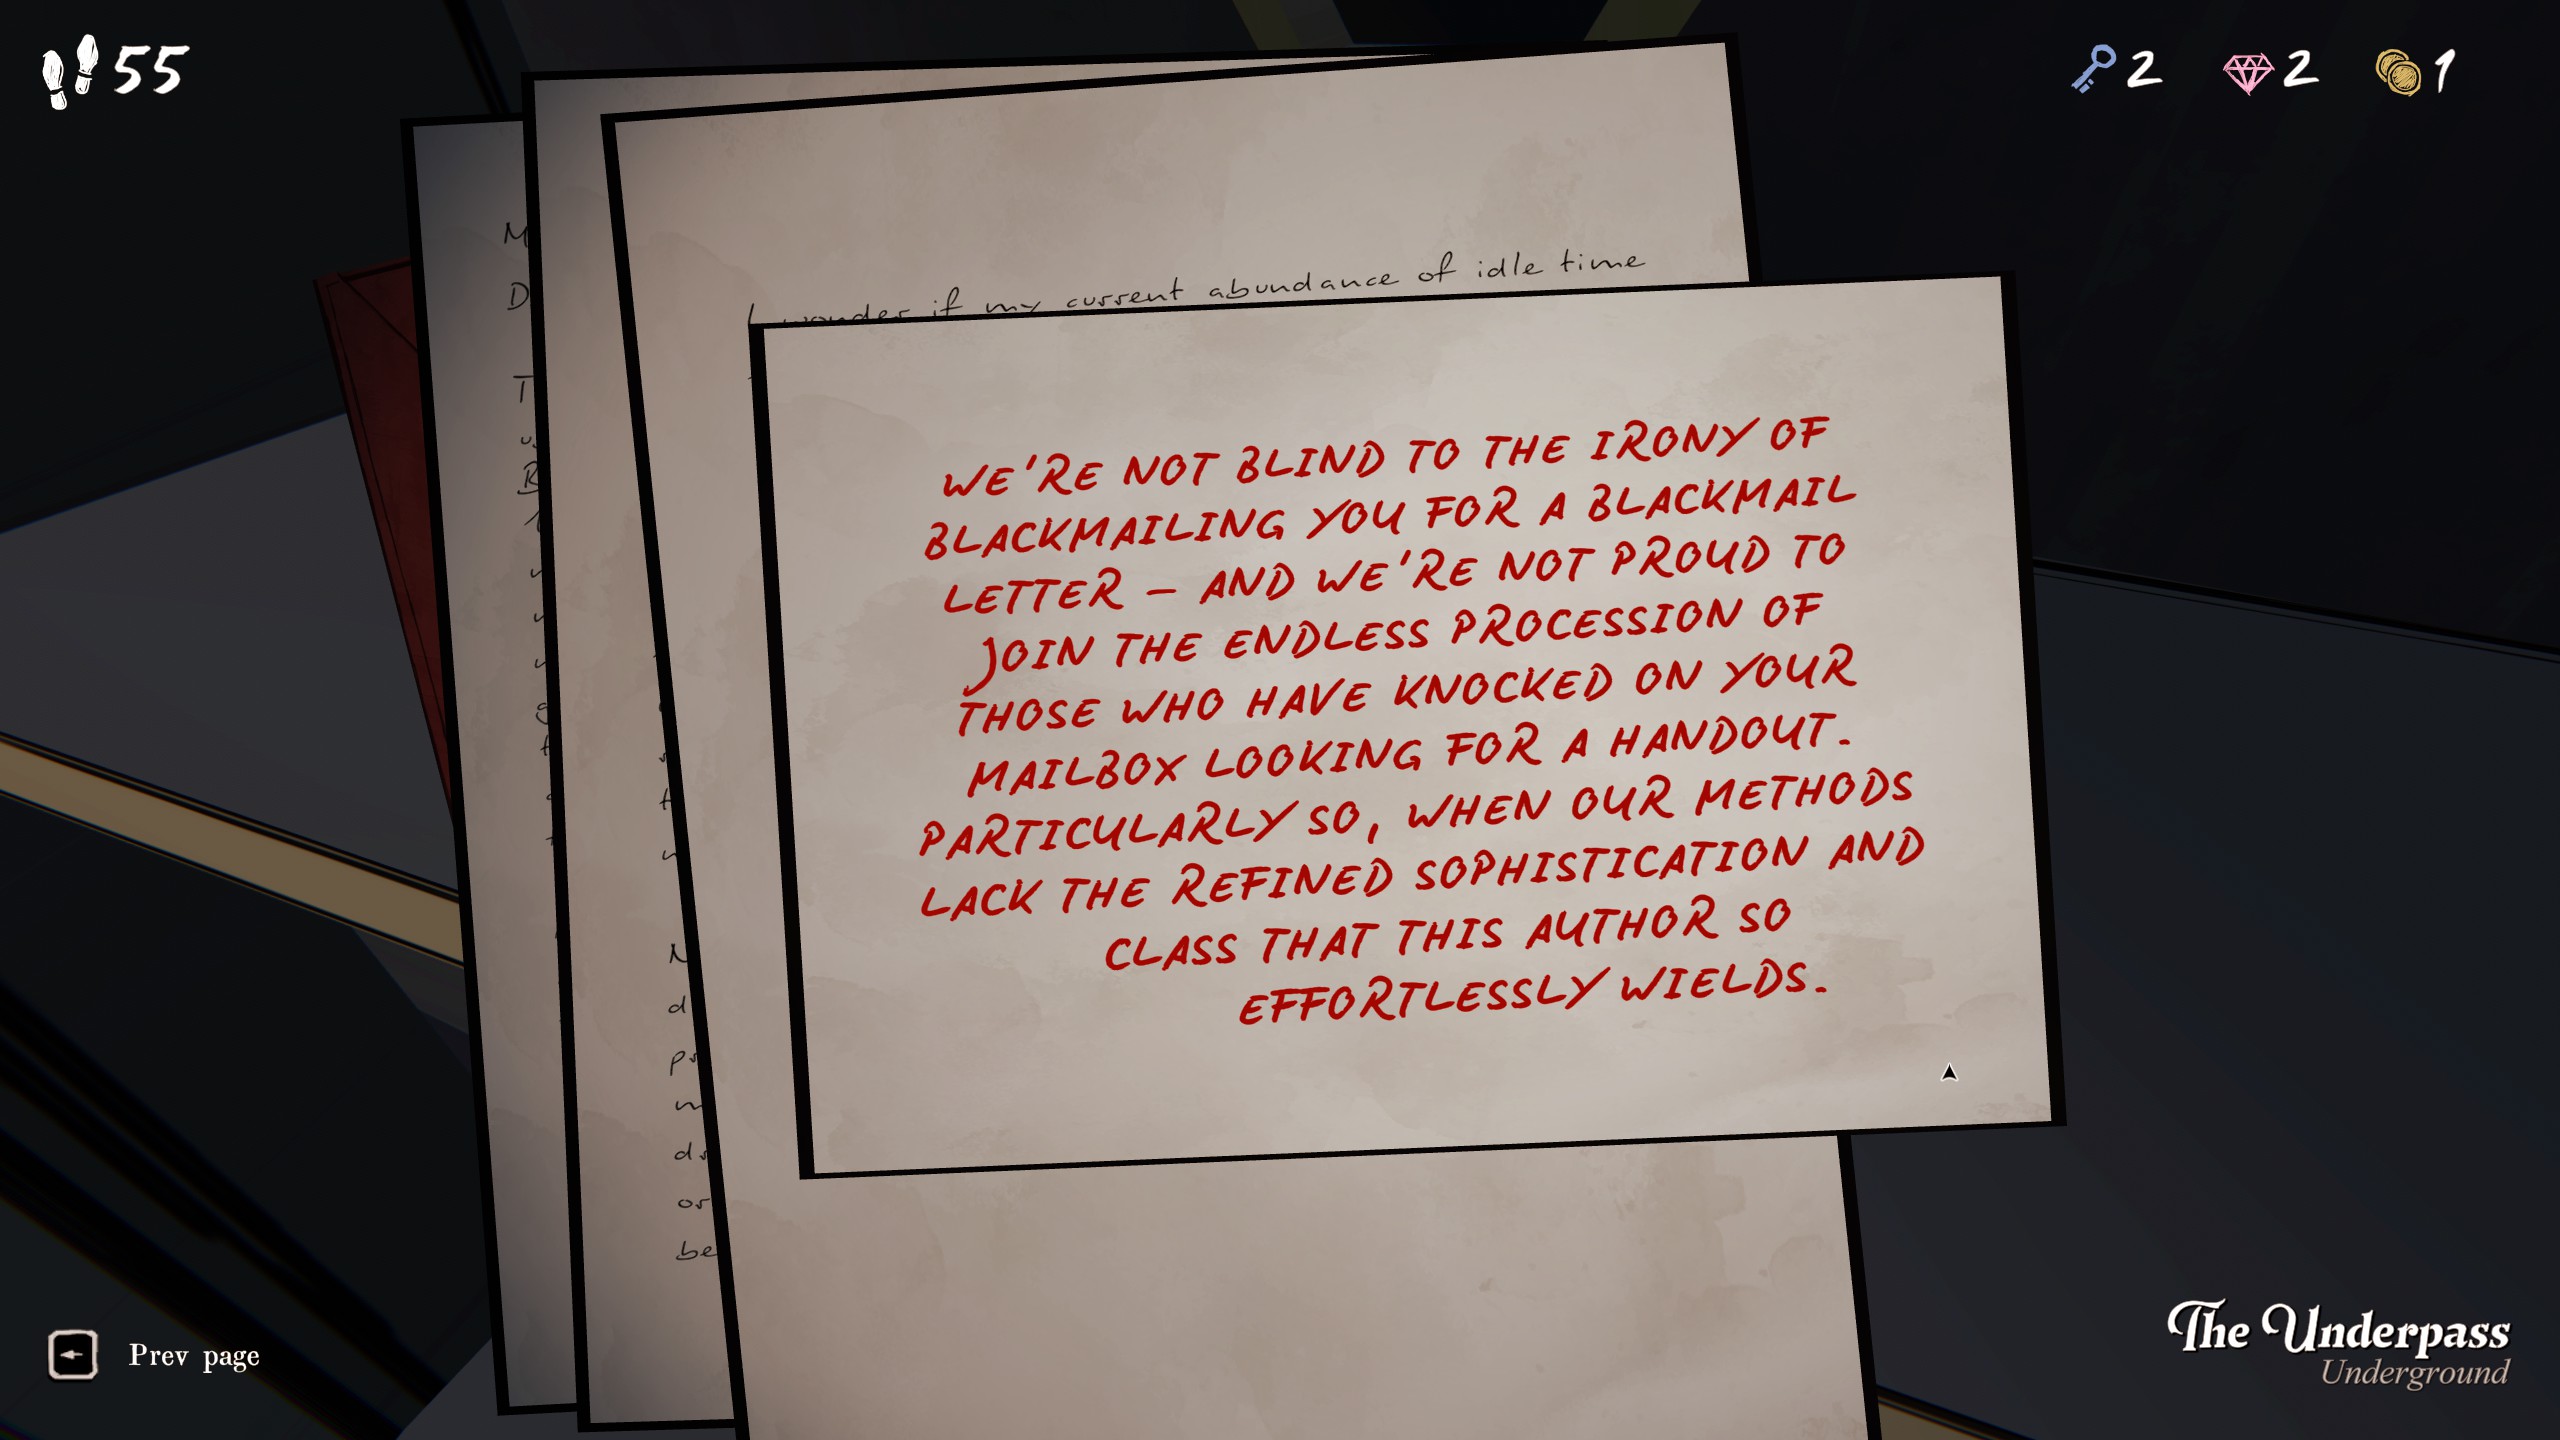 55
2
2
1
I wonder if my current abundance of idle time
WE'RE NOT BLIND TO THE IRONY OF
BLACKMAILING YOU FOR A BLACKMAIL
LETTER – AND WE'RE NOT PROUD TO
JOIN THE ENDLESS PROCESSION OF
THOSE WHO HAVE KNOCKED ON YOUR
MAILBOX LOOKING FOR A HANDOUT.
PARTICULARLY SO, WHEN OUR METHODS
LACK THE REFINED SOPHISTICATION AND
CLASS THAT THIS AUTHOR SO
EFFORTLESSLY WIELDS.
be
Prev page
The Underpass
Underground